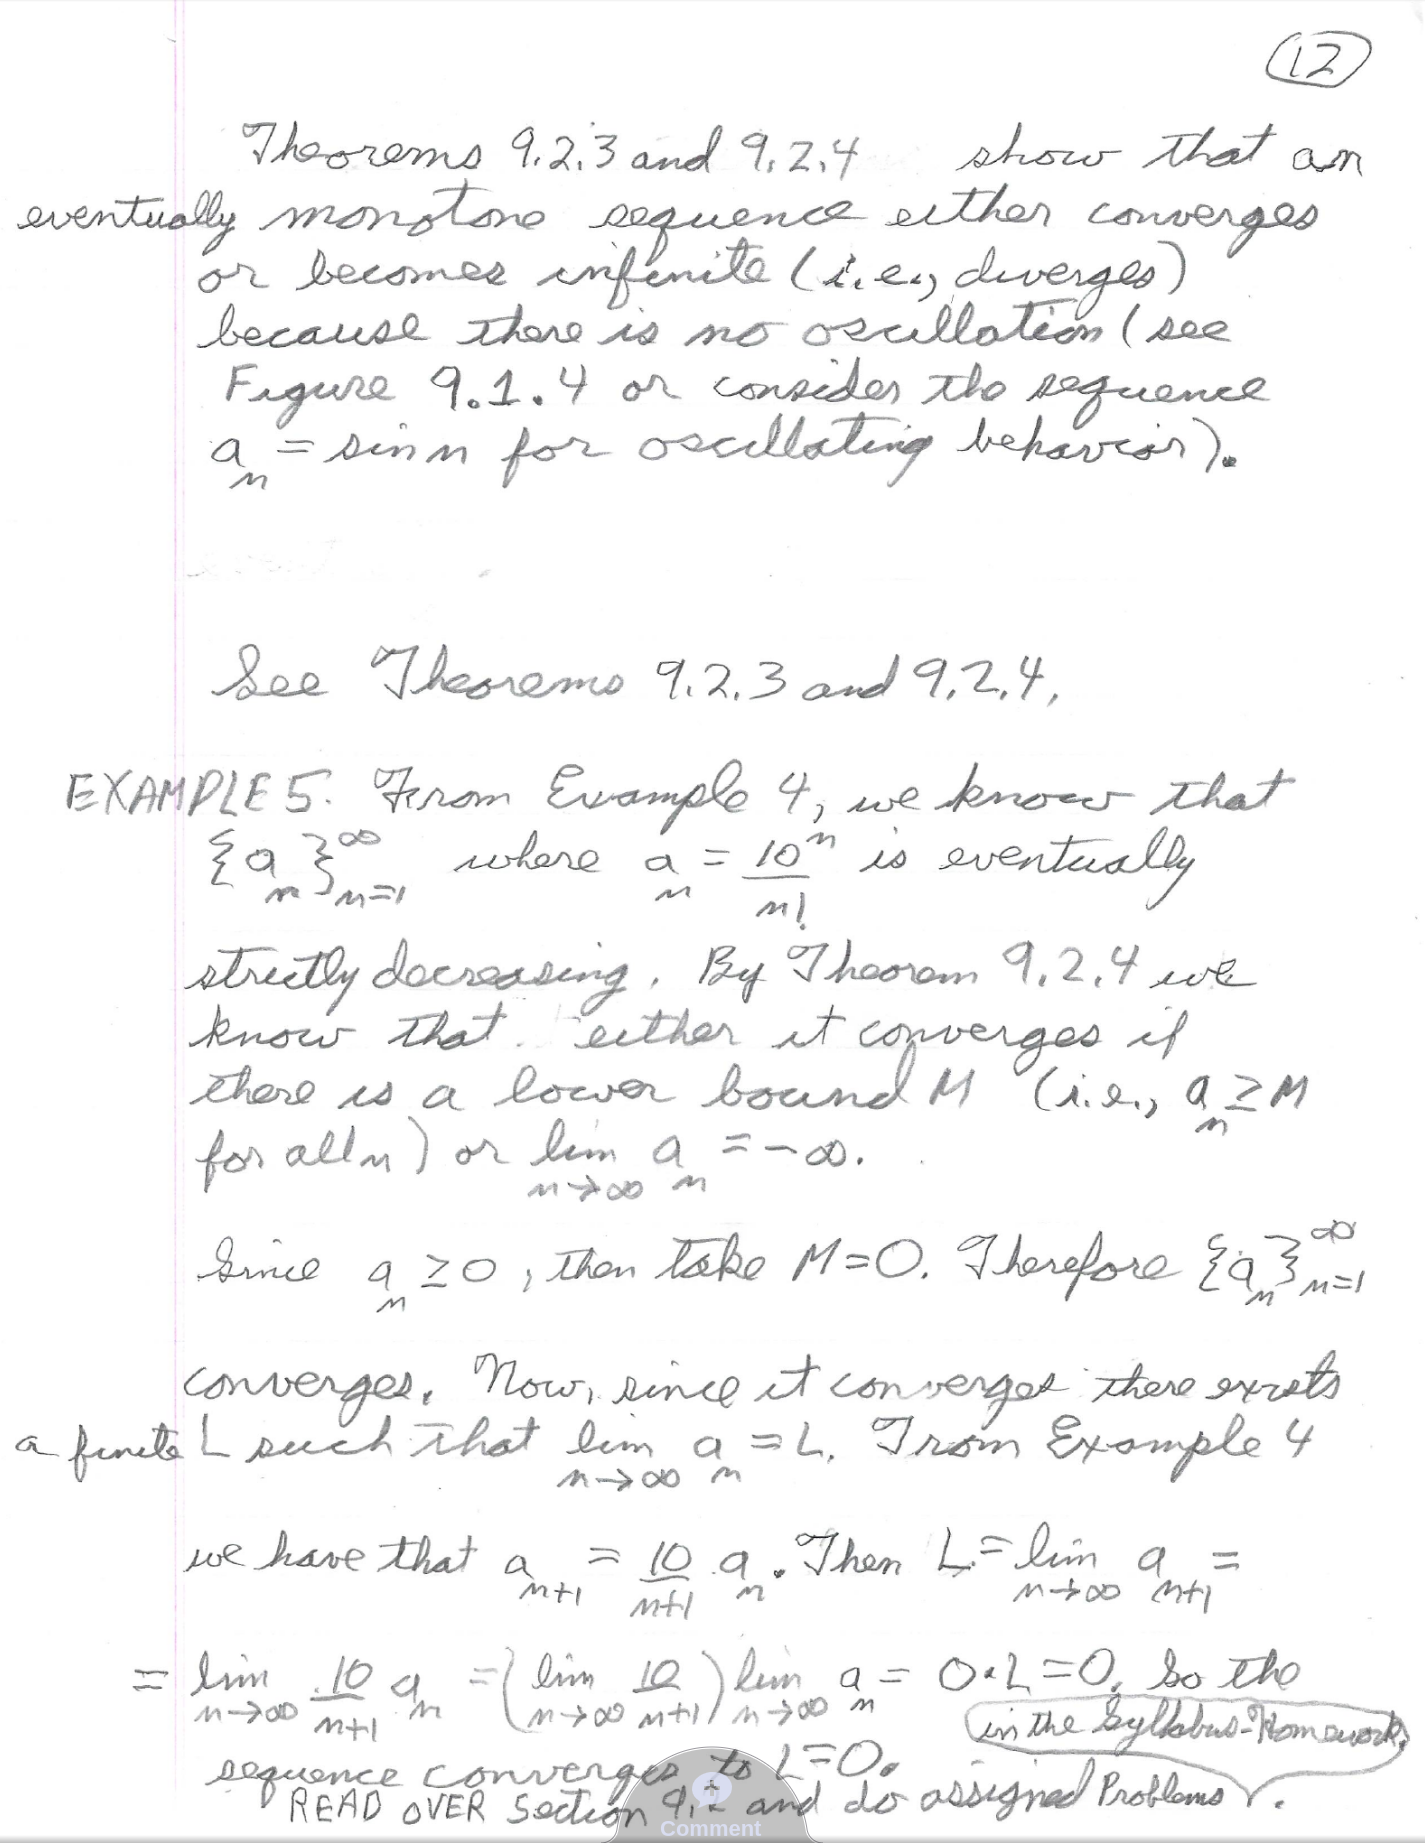 12
Theorems 9.2.3 and 9.2.4 show that an
eventually monotone sequence either converges
or becomes infinite (i.e., diverges)
because there is no oscillation (see
Figure 9.1.4 or consider the sequence
a_n = sin n for oscillating behavior).
See Theorems 9.2.3 and 9.2.4.
EXAMPLE 5. From Example 4, we know that
{a_n}_{n=1}^∞ where a_n = 10^n/n! is eventually
strictly decreasing. By Theorem 9.2.4 we
know that either it converges if
there is a lower bound M (i.e., a_n ≥ M
for all n) or lim_{n→∞} a_n = -∞.
Since a_n ≥ 0, then take M=0. Therefore {a_n}_{n=1}^∞
converges. Now, since it converges there exists
a finite L such that lim_{n→∞} a_n = L. From Example 4
we have that a_{n+1} = 10/(n+1) a_n. Then L = lim_{n→∞} a_{n+1} =
= lim_{n→∞} 10/(n+1) a_n = (lim_{n→∞} 10/(n+1)) lim_{n→∞} a_n = 0·L = 0. So the
in the Syllabus-Homework.
sequence converges to L=0.
READ OVER Section 9.2 and do assigned Problems.
Comment